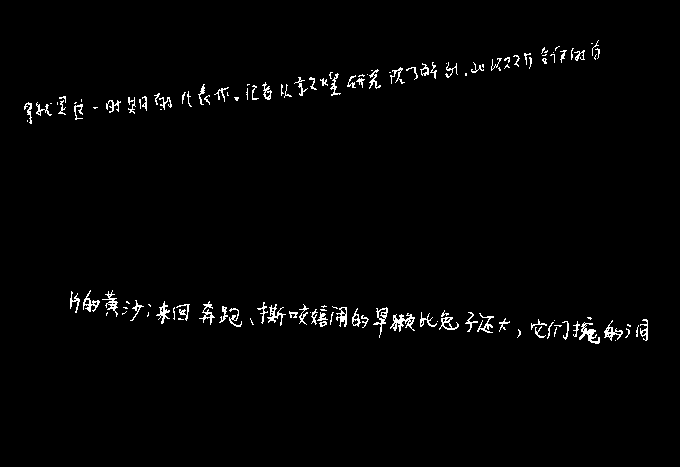 就是这一时期的代表作。记者从敦煌研究院了解到,此以22万合订的首
片的黄沙;来回奔跑、撕咬嬉闹的旱獭比兔子还大,它们挖的洞